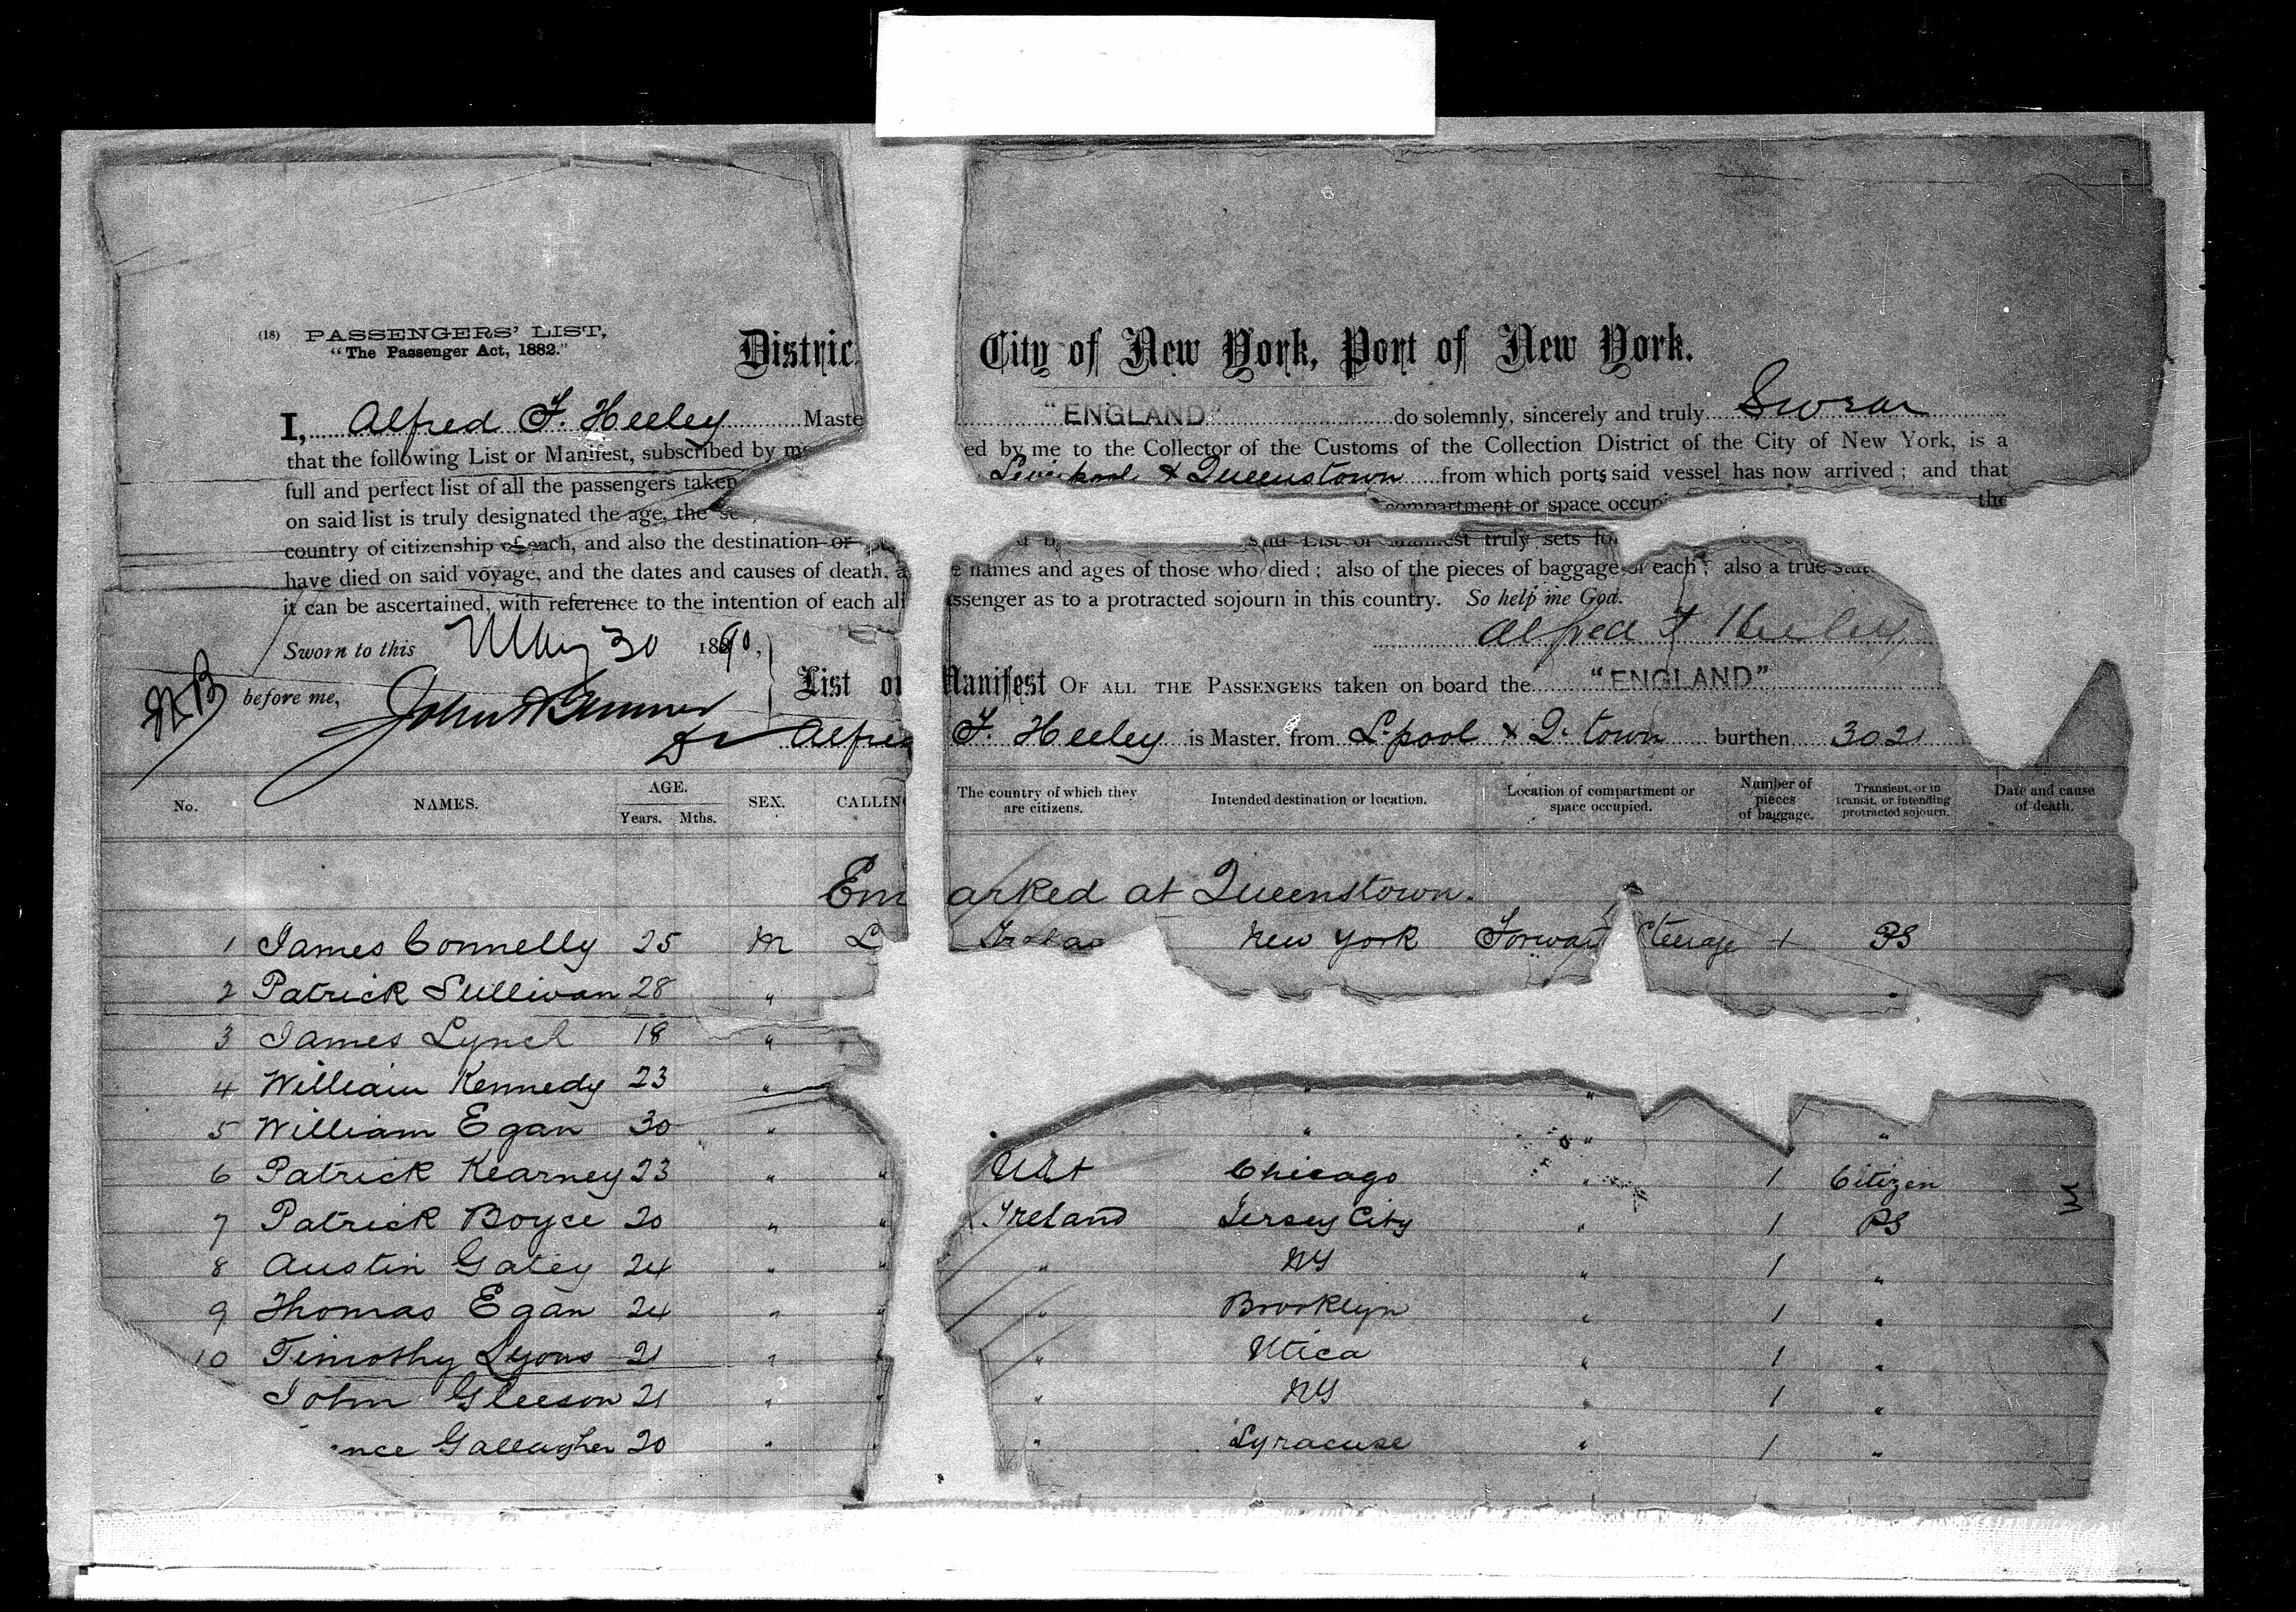 (18) PASSENGERS' LIST,
"The Passenger Act, 1882."
Distric City of New York, Port of New York.
I, Alfred F. Heeley Maste "ENGLAND" do solemnly, sincerely and truly Swear
that the following List or Manifest, subscribed by me ed by me to the Collector of the Customs of the Collection District of the City of New York, is a
full and perfect list of all the passengers taken Liverpool & Queenstown from which ports said vessel has now arrived; and that
on said list is truly designated the age, the se compartment or space occup the
country of citizenship of each, and also the destination or said List or Manifest truly sets fo
have died on said voyage, and the dates and causes of death, a e names and ages of those who died; also of the pieces of baggage of each; also a true
it can be ascertained, with reference to the intention of each ali ssenger as to a protracted sojourn in this country. So help me God.
Sworn to this May 30 1890, Alfred F Heeley
before me, List or Manifest OF ALL THE PASSENGERS taken on board the "ENGLAND"
Alfre F. Heeley is Master, from L'pool & Q. town burthen 3021
No. NAMES. AGE. Years. Mths. SEX. CALLIN The country of which they are citizens. Intended destination or location. Location of compartment or space occupied. Number of pieces of baggage. Transient, or in transit, or intending protracted sojourn. Date and cause of death.
Em arked at Queenstown.
1 James Connelly 25 M L Ireland New York Forward Steerage 1 PS
2 Patrick Sullivan 28 " "
3 James Lynch 18 "
4 William Kennedy 23 " " "
5 William Egan 30 " " " "
6 Patrick Kearney 23 " " USt Chicago " 1 Citizen
7 Patrick Boyce 20 " " Ireland Jersey City " 1 PS
8 Austin Gatey 24 " " " NY " 1 "
9 Thomas Egan 24 " " " Brooklyn " 1 "
10 Timothy Lyons 21 " " " Utica " 1 "
John Gleeson 21 " " " NY " 1 "
nce Gallagher 20 " " " Syracuse " 1 "